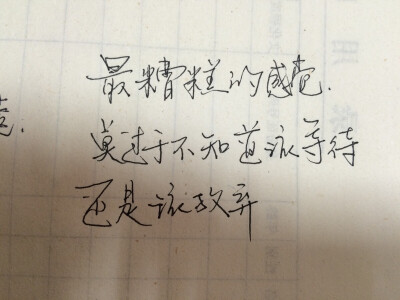 最糟糕的感觉.
莫过于不知道该等待
还是该放弃